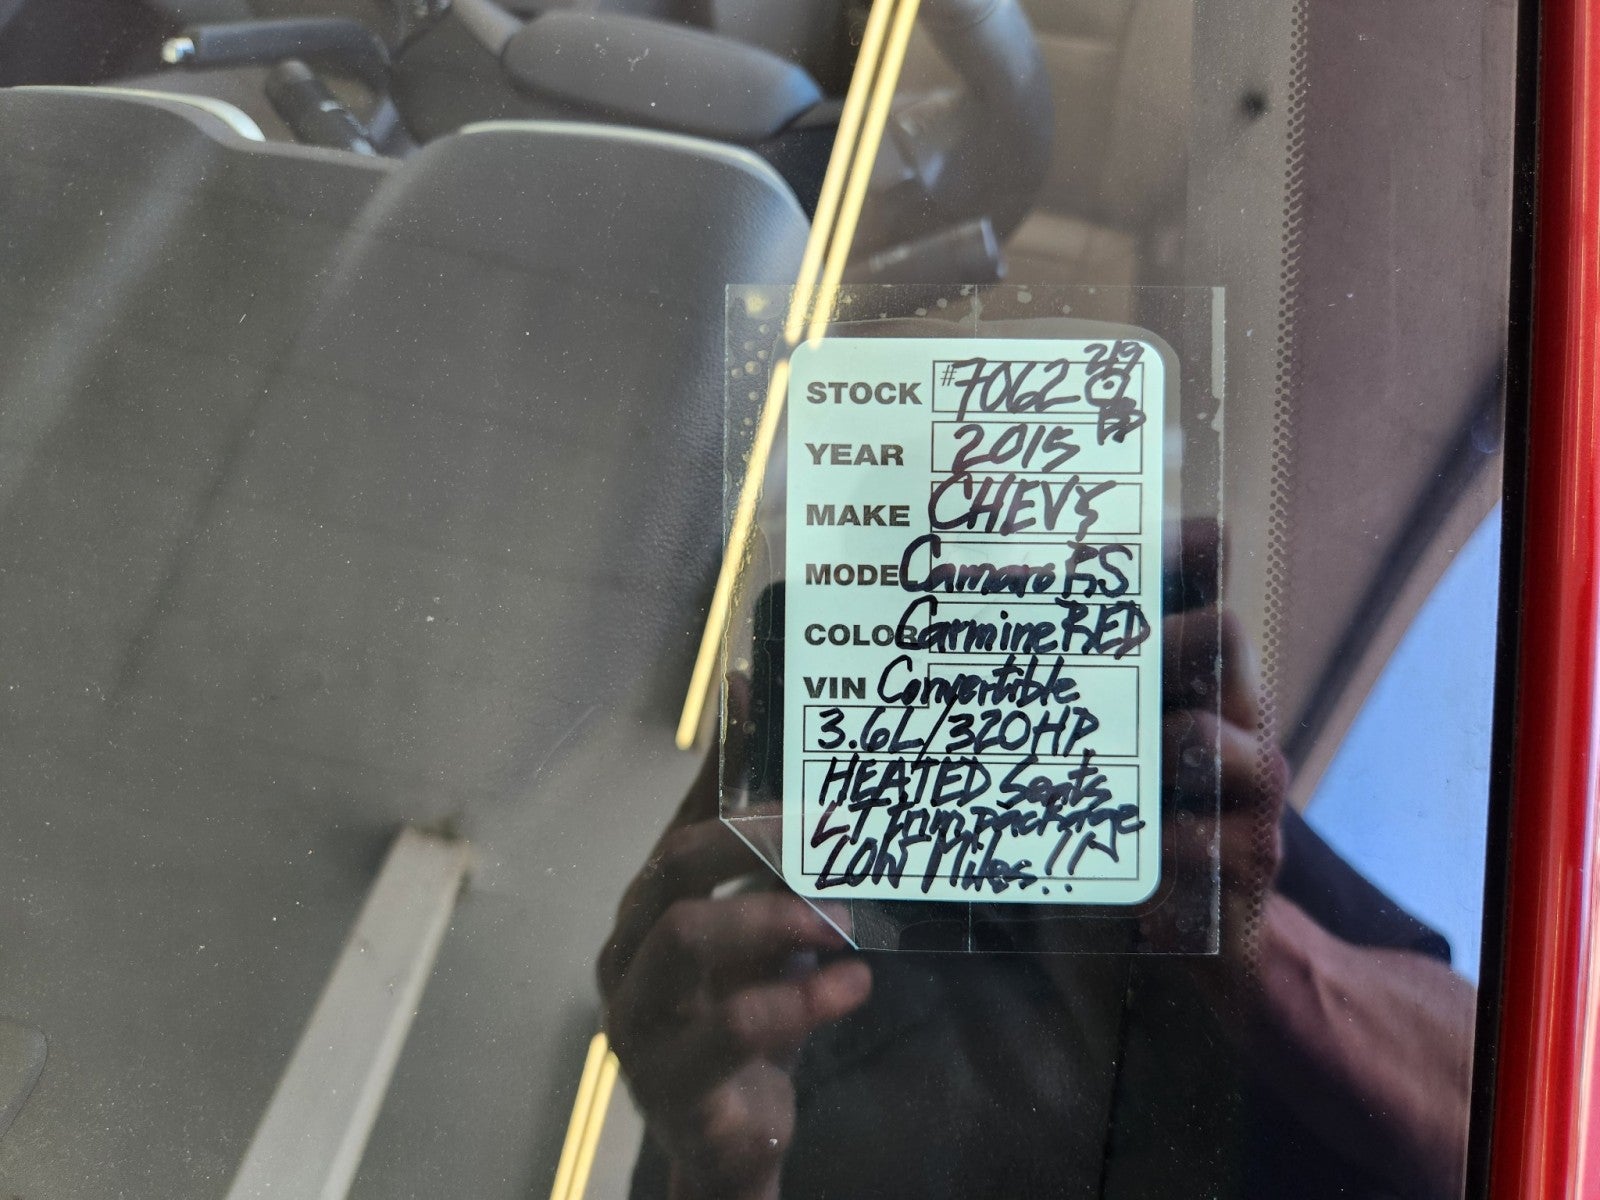 STOCK #7062 2/9
YEAR 2015
MAKE CHEVY
MODEL Camaro RS
COLOR Carmine RED
VIN Convertible
3.6L/320HP
HEATED Seats
LT Trim package
LOW Miles!!